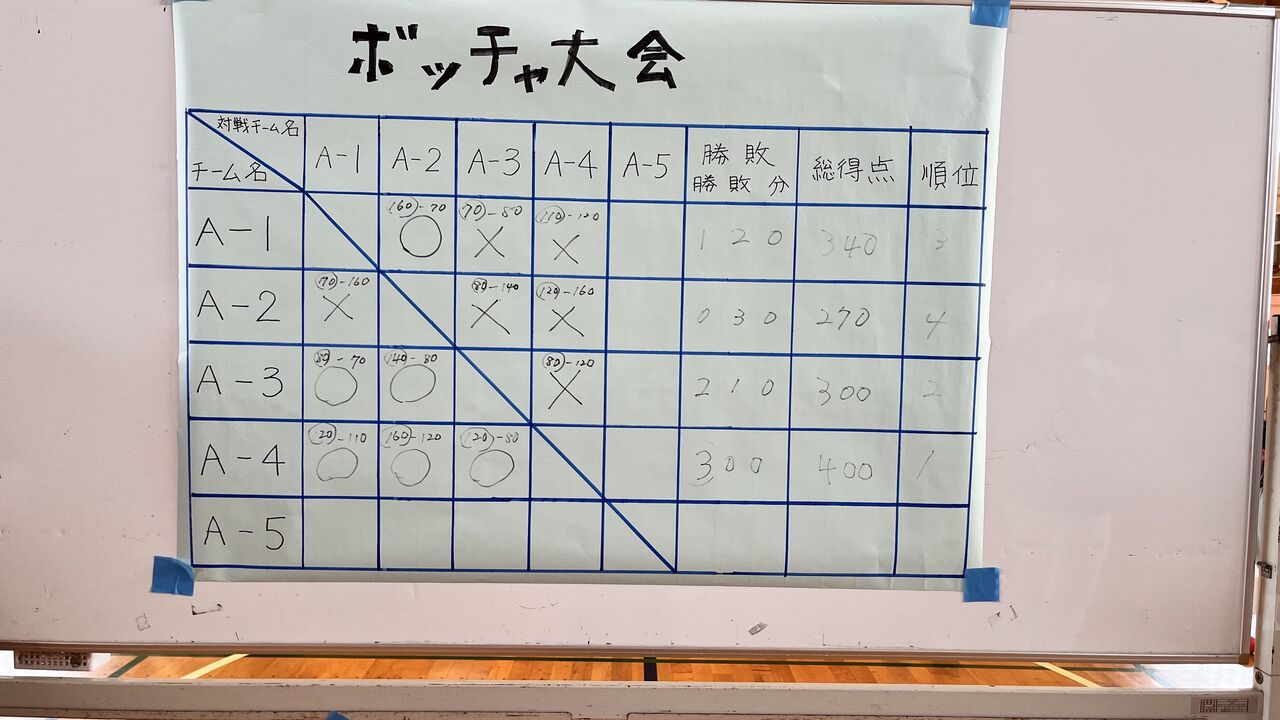 ボッチャ大会
対戦チーム名
チーム名
A-1 A-2 A-3 A-4 A-5 勝敗 総得点 順位
勝敗分
A-1 160-70 ○ 70-80 × 110-120 × 1 2 0 340 3
A-2 70-160 × 80-140 × 120-160 × 0 3 0 270 4
A-3 80-70 ○ 140-80 ○ 80-120 × 2 1 0 300 2
A-4 120-110 ○ 160-120 ○ 120-80 ○ 3 0 0 400 1
A-5